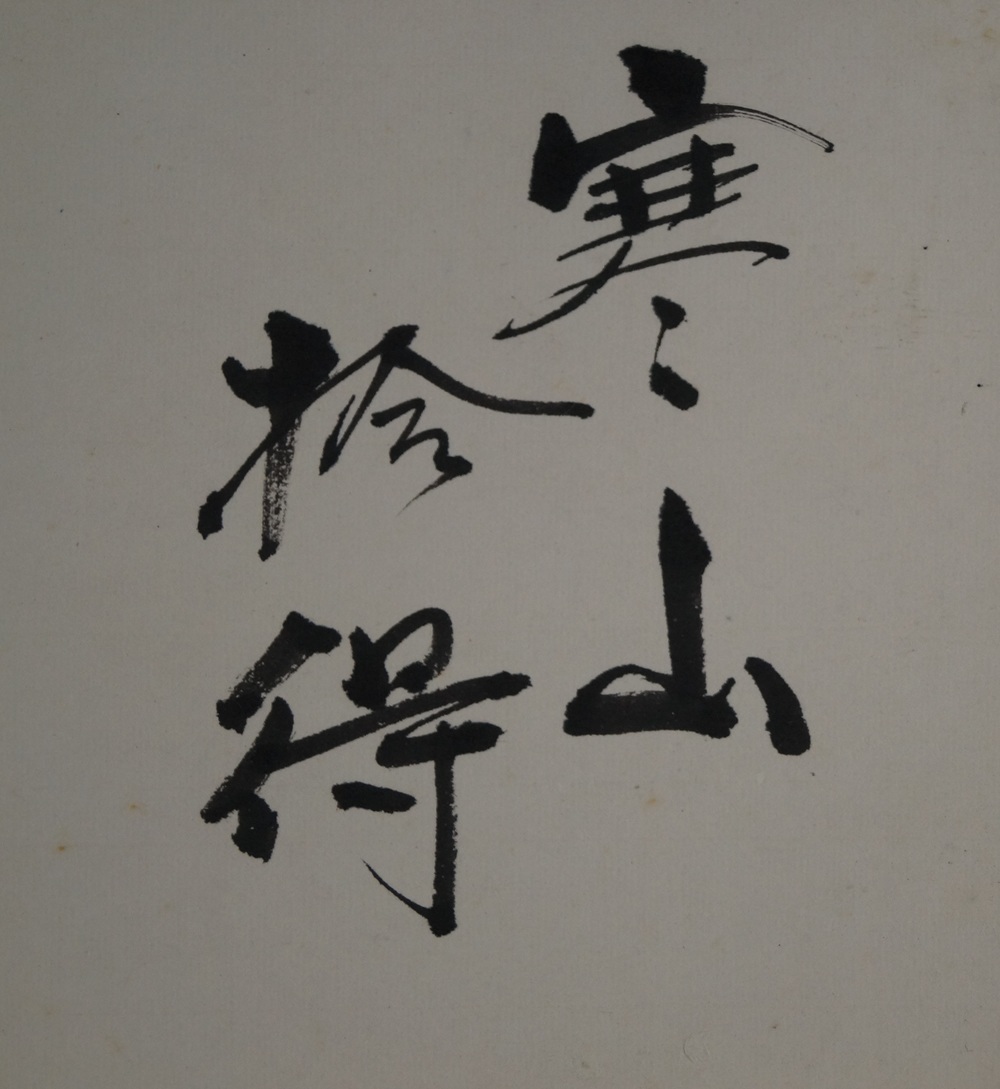 寒山
拾得